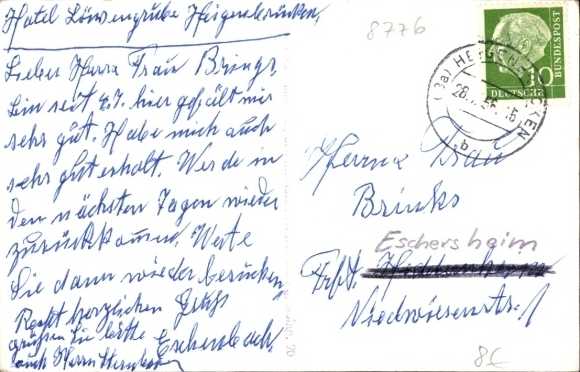 Hotel Löwengrube Heigenbrücken,
Lieber Herr u Frau Brinks,
bin seit 4.7. hier gefällt mir
sehr gut. Habe mich auch
sehr gut erholt. Werde in
den nächsten Tagen wieder
zurückkommen. Werte
Sie dann wieder besuchen,
Recht herzlichen Gruß
grüßen Sie bitte Eschenbach
auch Herrn
8776
DEUTSCHE
BUNDESPOST
10
(13a) HEIGENBRÜCKEN
b
Herrn u Frau
Brinks
Eschersheim
Frkft.
Niedwiesenstr. 1
8€